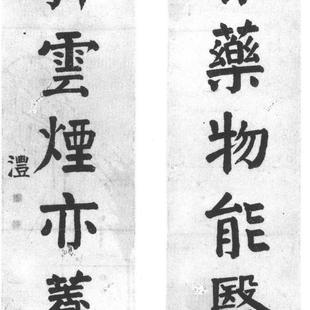 藥物能醫
雲煙亦養
澧